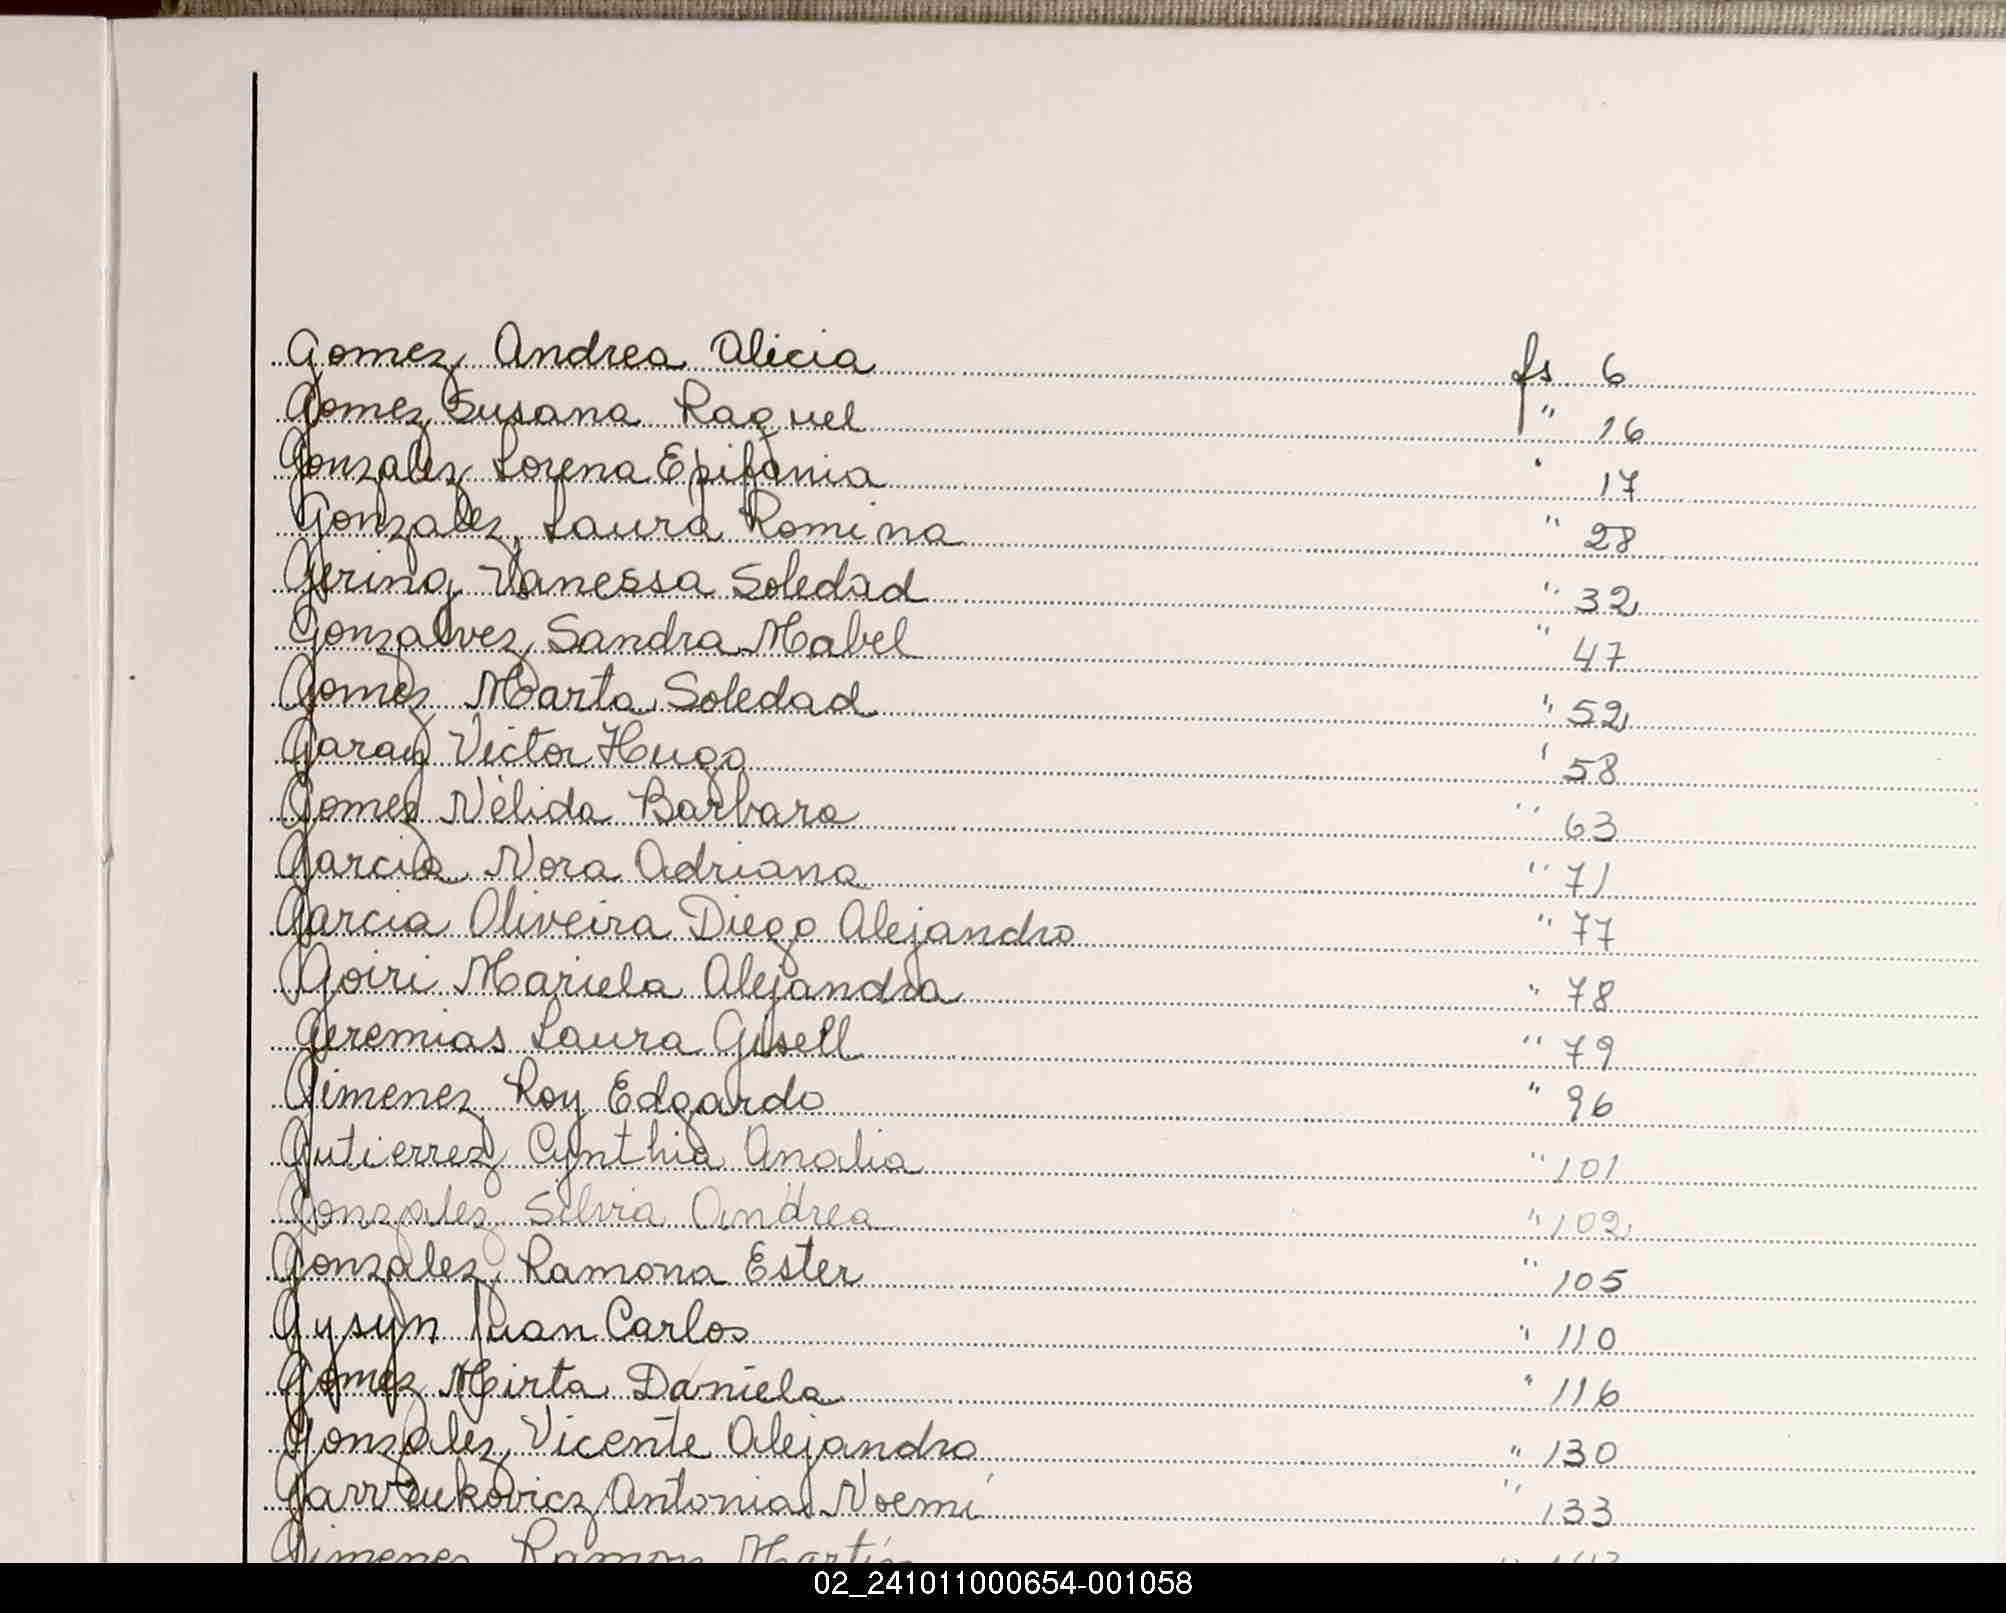 Gomez Andrea Alicia fs 6
Gomez Susana Raquel " 16
Gonzalez Lorena Epifania " 17
Gonzalez, Laura Romina " 28
Gering Vanessa Soledad " 32
Gonzalvez Sandra Mabel " 47
Gomez Marta Soledad " 52
Garay Victor Hugo " 58
Gomez Nélida Barbara " 63
Garcia Nora Adriana " 71
Garcia Oliveira Diego Alejandro " 77
Goiri Mariela Alejandra " 78
Geremias Laura Gisell " 79
Gimenez Roy Edgardo " 96
Gutierrez Cynthia Analia " 101
Gonzalez Silvia Andrea " 102
Gonzalez Ramona Ester " 105
Gysyn Juan Carlos " 110
Gomez Mirta Daniela " 116
Gonzalez Vicente Alejandro " 130
Antonia Noemí " 133
Gimenez Ramon Martín
02_241011000654-001058